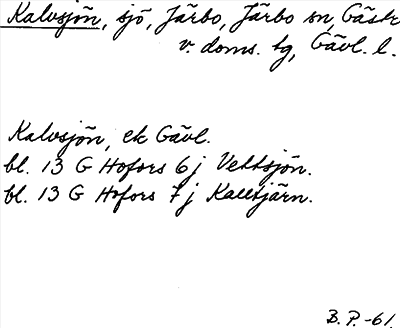 Kalvsjön, sjö, Järbo, Järbo sn, Gästr
v. doms. tg, Gävl. l.
Kalvsjön, ek Gävl.
bl. 13 G Hofors 6 j Vettsjön.
bl. 13 G Hofors 7 j Kalltjärn.
B. P. -61.